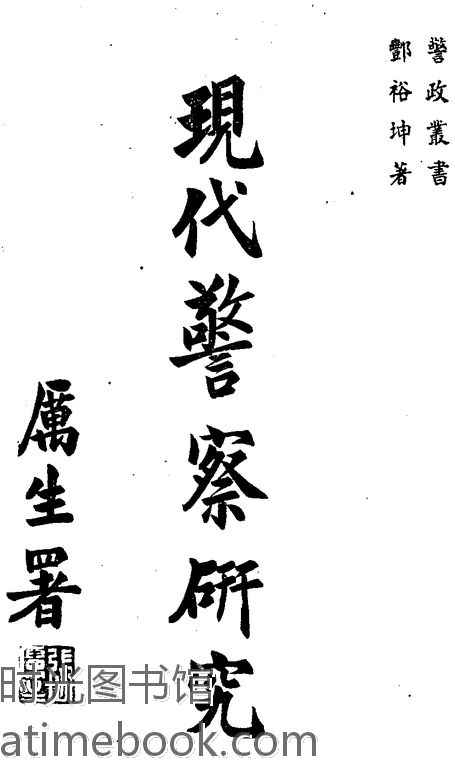 警政叢書
酆裕坤著
現代警察研究
厲生署
張厲生
时光图书馆
atimebook.com